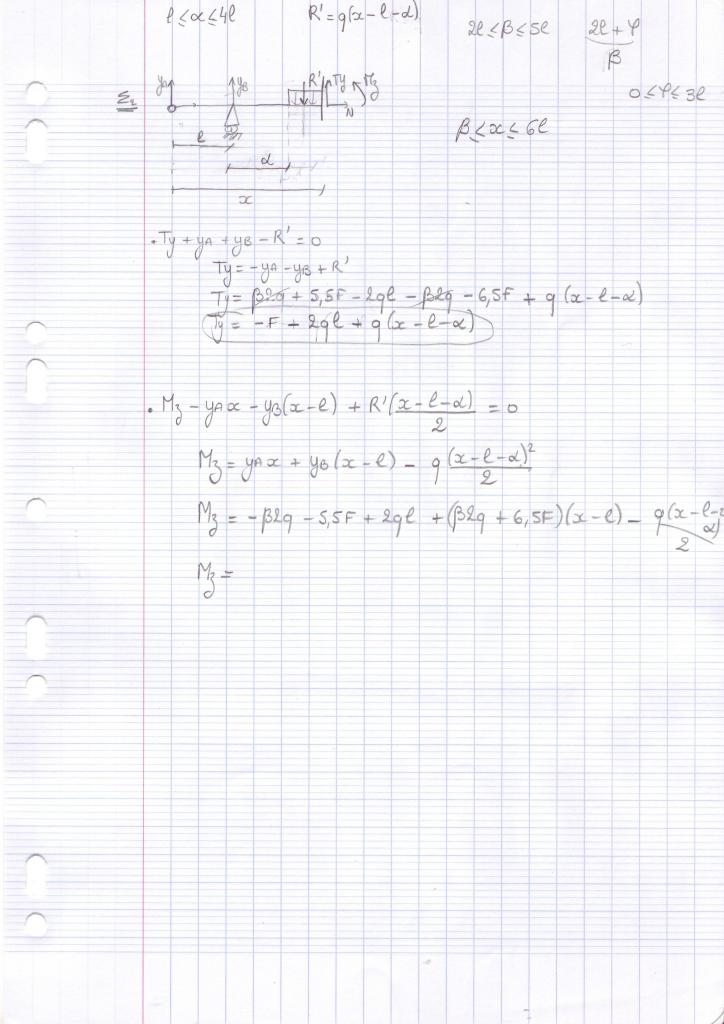 l ≤ α ≤ 4l R' = q(x - l - α) 2l ≤ β ≤ 5l 2l + φ
β
0 ≤ φ ≤ 3l
yA yB R' Ty Mz
N
β ≤ x ≤ 6l
l
α
x
• Ty + yA + yB - R' = 0
Ty = - yA - yB + R'
Ty = β2q + 5,5F - 2ql - β2q - 6,5F + q (x - l - α)
Ty = - F + 2ql + q(x - l - α)
• Mz - yA x - yB(x - l) + R'(x - l - α)/2 = 0
Mz = yA x + yB (x - l) - q (x - l - α)²/2
Mz = - β2q - 5,5F + 2ql + (β2q + 6,5F)(x - l) - q(x - l - α)²/2
Mz =